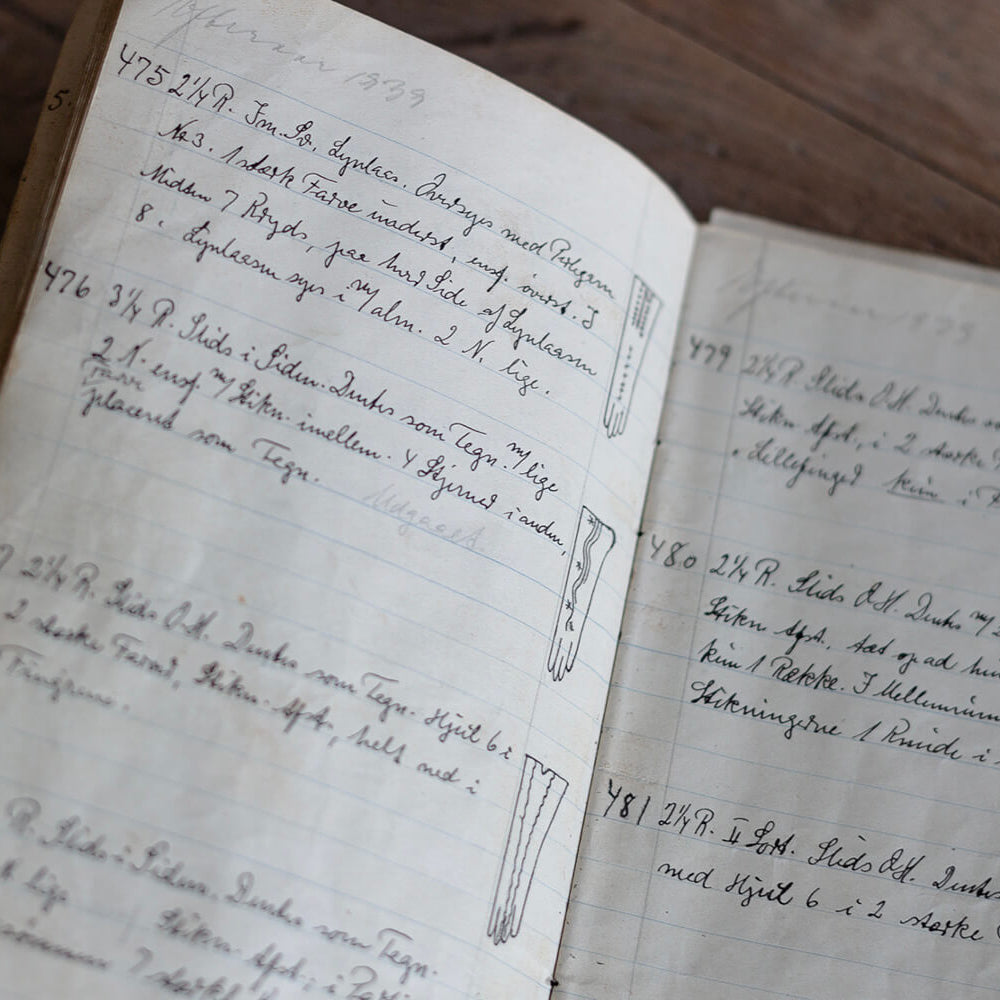 1939
5.
475 2¼ R. Im. Sv. Lynlaas. Oversyes med Perlegarn
No 3. 1 stærk Farve underst, ensf. øverst. I
Midten 7 Kryds, paa hver Side af Lynlaasen
8. Lynlaasen syes i m/ alm. 2 N. lige.
476 3¼ R. Slids i Siden. Dentes som Tegn. m/ lige
2 N. ensf. m/ Stikn. imellem. 4 Stjerner i anden
Farve
placeret som Tegn.
Udgaaet.
7 2¼ R. Slids O.H. Dentes som Tegn. Hjul 6 i
2 stærke Farver, Stikn. Afst., helt ned i
Fingrene.
R. Slids i Siden. Dentes som Tegn.
lige Stikn. Afst., i
7 stærke
479 2¼ R Slids O.H. Dentes
Stikn. Afst., i 2 stærke
Lillefinger kun i
480 2¼ R. Slids O.H. Dentes m/
Stikn. Afst., tæt op ad
kun 1 Række. I Mellemrum
Stikningerne 1 Runde i
481 2¼ R. II Sort. Slids O.H. Dentes
med Hjul 6 i 2 stærke